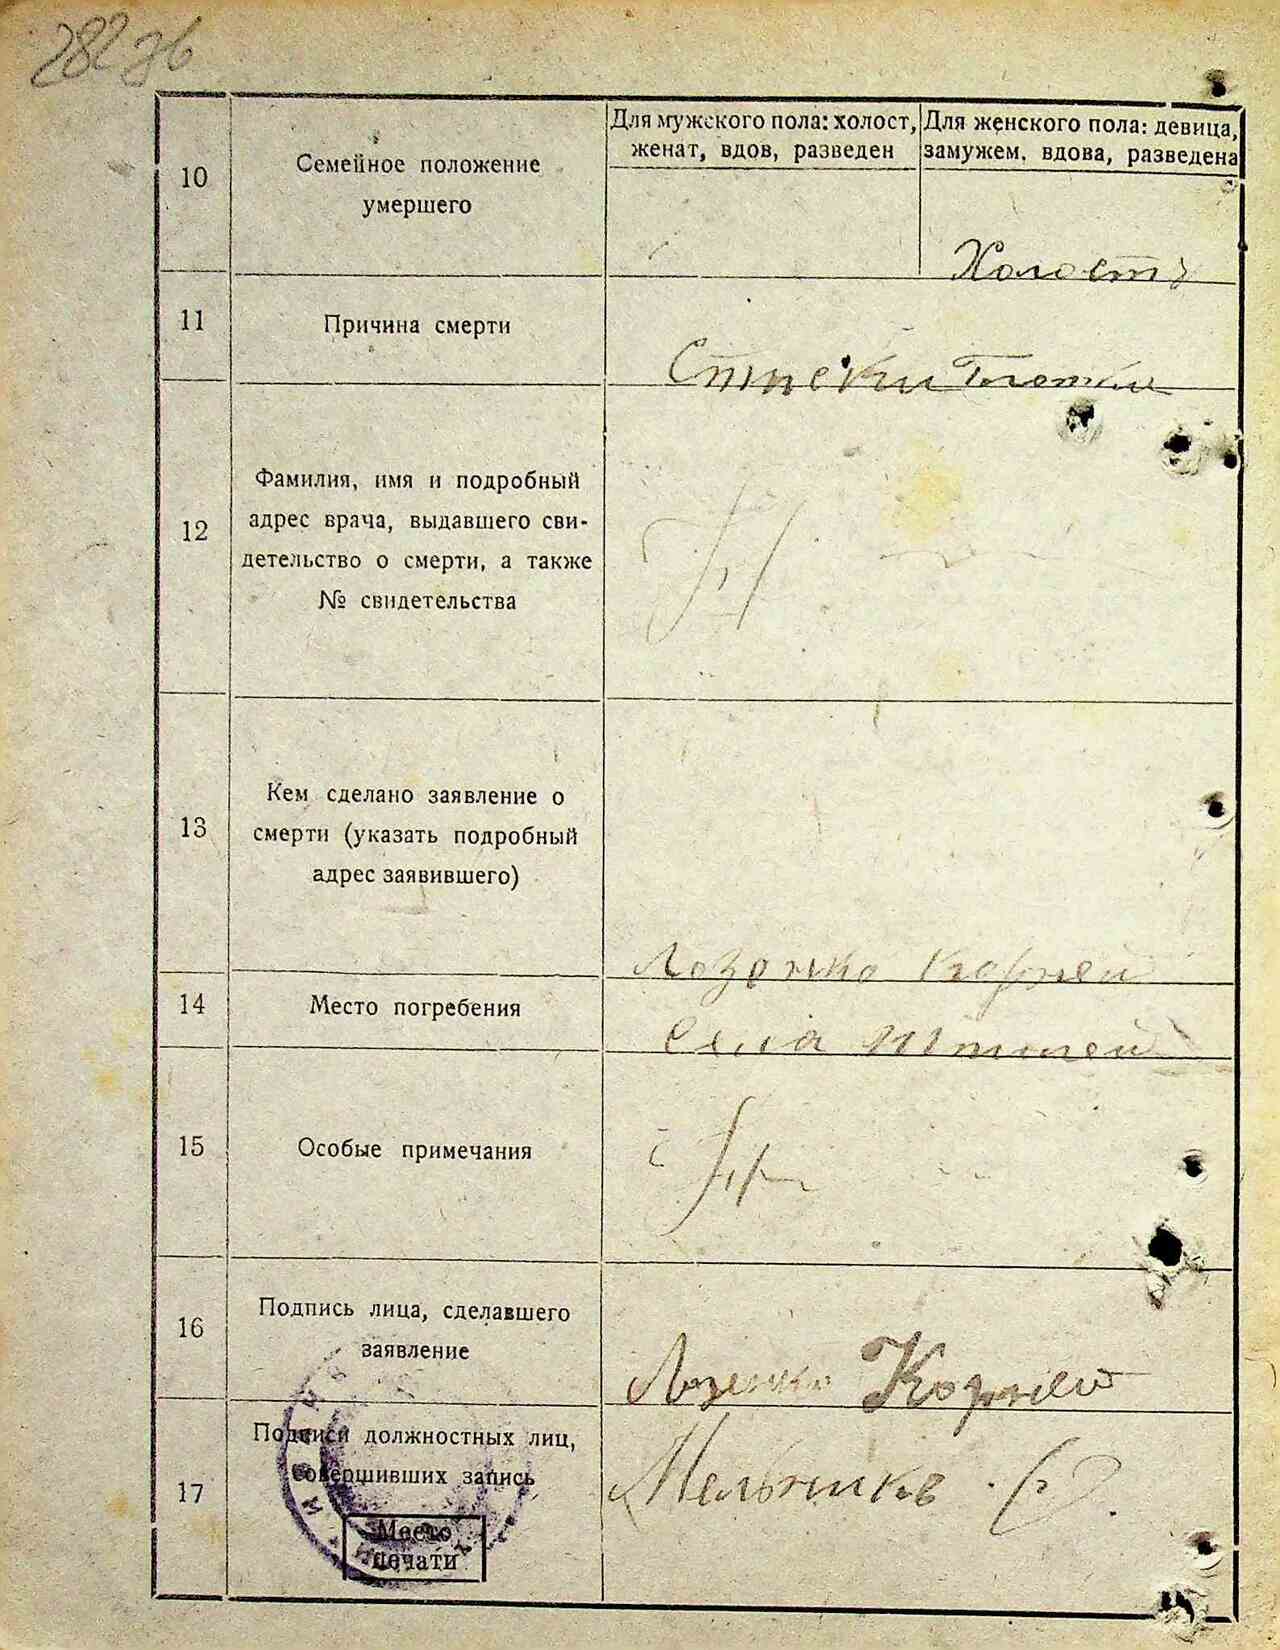 10
Семейное положение
умершего
Для мужского пола: холост,
женат, вдов, разведен
Для женского пола: девица,
замужем, вдова, разведена
Холост
11
Причина смерти
12
Фамилия, имя и подробный
адрес врача, выдавшего сви-
детельство о смерти, а также
№ свидетельства
13
Кем сделано заявление о
смерти (указать подробный
адрес заявившего)
Корней
14
Место погребения
15
Особые примечания
16
Подпись лица, сделавшего
заявление
Корней
17
Подписи должностных лиц,
совершивших запись
Место
печати
Мельников